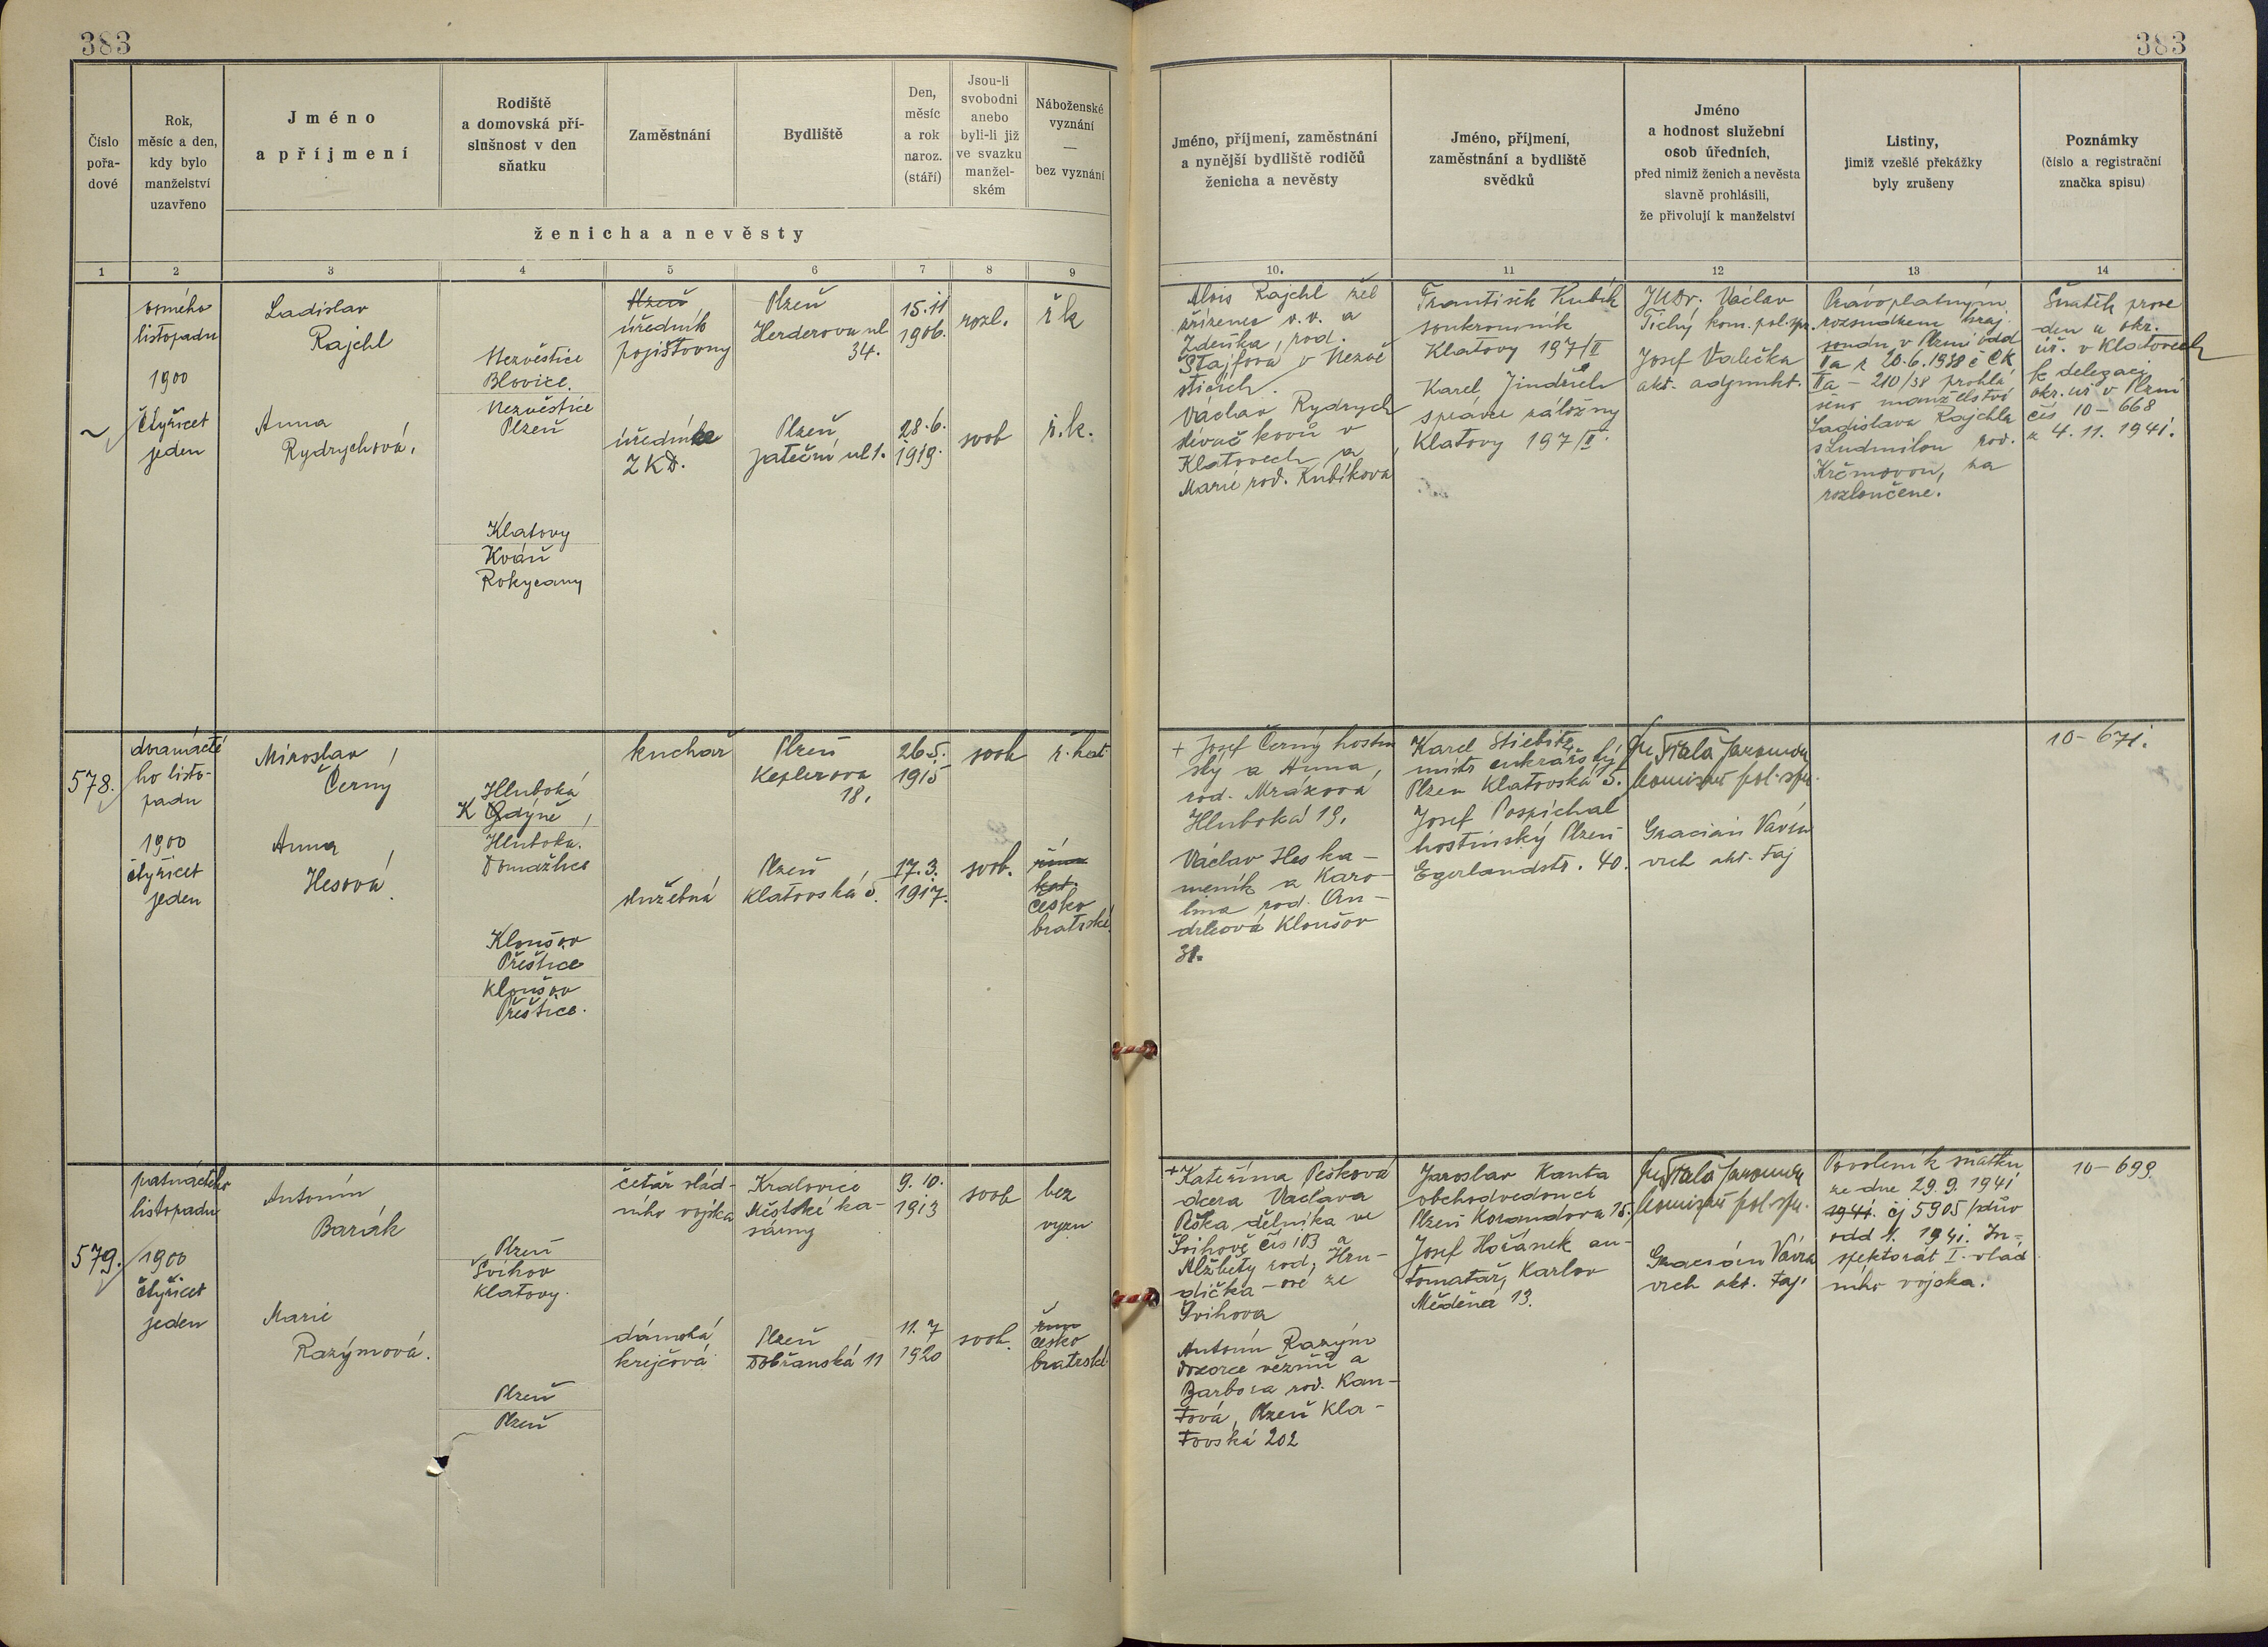 383
383
Číslo
pořa-
dové
Rok,
měsíc a den,
kdy bylo
manželství
uzavřeno
Jméno
a příjmení
Rodiště
a domovská pří-
slušnost v den
sňatku
Zaměstnání
Bydliště
Den,
měsíc
a rok
naroz.
(stáří)
Jsou-li
svobodni
anebo
byli-li již
ve svazku
manžel-
ském
Náboženské
vyznání
—
bez vyznání
ženicha a nevěsty
Jméno, příjmení, zaměstnání
a nynější bydliště rodičů
ženicha a nevěsty
Jméno, příjmení,
zaměstnání a bydliště
svědků
Jméno
a hodnost služební
osob úředních,
před nimiž ženich a nevěsta
slavně prohlásili,
že přivolují k manželství
Listiny,
jimiž vzešlé překážky
byly zrušeny
Poznámky
(číslo a registrační
značka spisu)
1 2 3 4 5 6 7 8 9 10. 11 12 13 14
osmého
listopadu
1900
čtyřicet
jeden
Ladislav
Rajchl
Anna
Rydrychová,
Nezvěstice
Blovice.
Nezvěstice
Plzeň
Klatovy
Kváň
Rokycany
Plzeň
úředník
pojišťovny
úřednice
ZKD.
Plzeň
Herderova ul
34.
Plzeň
Jateční ul 1.
15.11
1906.
28.6.
1919.
rozl.
svob
ř k
ř.k.
Alois Rajchl žel
zřízenec v.v. a
Zdeňka, rod.
Štajfova v Nezvě
sticích.
Václav Rydrych
slévač kovů v
Klatovech a
Marie rod. Kubíkova
František Kubík
soukromník
Klatovy 197/II
Karel Jindřich
správce záložny
Klatovy 197/II.
JUDr. Václav
Tichý kom. pol. spr.
Josef Valečka
akt. adjunkt.
Právoplatným
rozsudkem kraj.
soudu v Plzni odd
IIa z 20.6.1938 č Ck
IIa - 210/38 prohlá
šeno manželství
Ladislava Rajchla
s Ludmilou rod.
Krčmovou, za
rozloučené.
Sňatek prove
den u okr.
úř. v Klatovech
k delegaci
okr. úř v Plzni
čís 10-668
z 4.11.1941.
578.
dvanácté
ho listo-
padu
1900
čtyřicet
jeden
Miroslav
Černý
Anna
Hesová
Hluboká
K Kdýně,
Hluboká.
Domažlice
Kloušov
Přeštice
Kloušov
Přeštice.
kuchař
služebná
Plzeň
Keplerova
18,
Plzeň
Klatovská 5.
26.5.
1915
17.3.
1917.
svob
svob.
ř. kat
řím
kat.
česko
bratrské
+ Josef Černý hostin
ský a Anna,
rod. Mrázova
Hluboká 19.
Václav Hes ka-
meník a Karo-
lina rod. On-
drlcová Kloušov
31.
Karel Stiebitz
mistr cukrářský
Plzeň Klatovská 5.
Josef Pospíchal
hostinský Plzeň
Egerlandstr. 40.
komisař pol. spr.
Gracián Vávra
vrch akt. taj
10-671.
579.
patnáctého
listopadu
1900
čtyřicet
jeden
Antonín
Barák
Marie
Razýmová.
Plzeň
Švihov
Klatovy.
Plzeň
Plzeň
četař vlád-
ního vojska
dámská
krejčová
Kralovice
Městské ka-
sárny
Plzeň
Dobřanská 11
9.10.
1913
11.7
1920
svob
svob.
bez
vyzn
řím
česko
bratrské
+ Kateřina Pešková
dcera Václava
Peška dělníka ve
Švihově čís 103 a
Alžběty rod, Hru-
dička-ové ze
Švihova
Antonín Razým
dozorce vězňů a
Barbora rod. Kan-
tová, Plzeň Kla-
tovská 202
Jaroslav Kanta
obchodvedoucí
Plzeň Korandova 15.
Josef Hořánek au-
tomatář, Karlov
Měděná 13.
komisař pol. spr.
Gracián Vávra
vrch akt. taj.
Povolení k sňatku
ze dne 29.9.1941
1941. čj 5905/dův
odd 1. 1941. In-
spektorát I. vlád
ního vojska.
10-699.